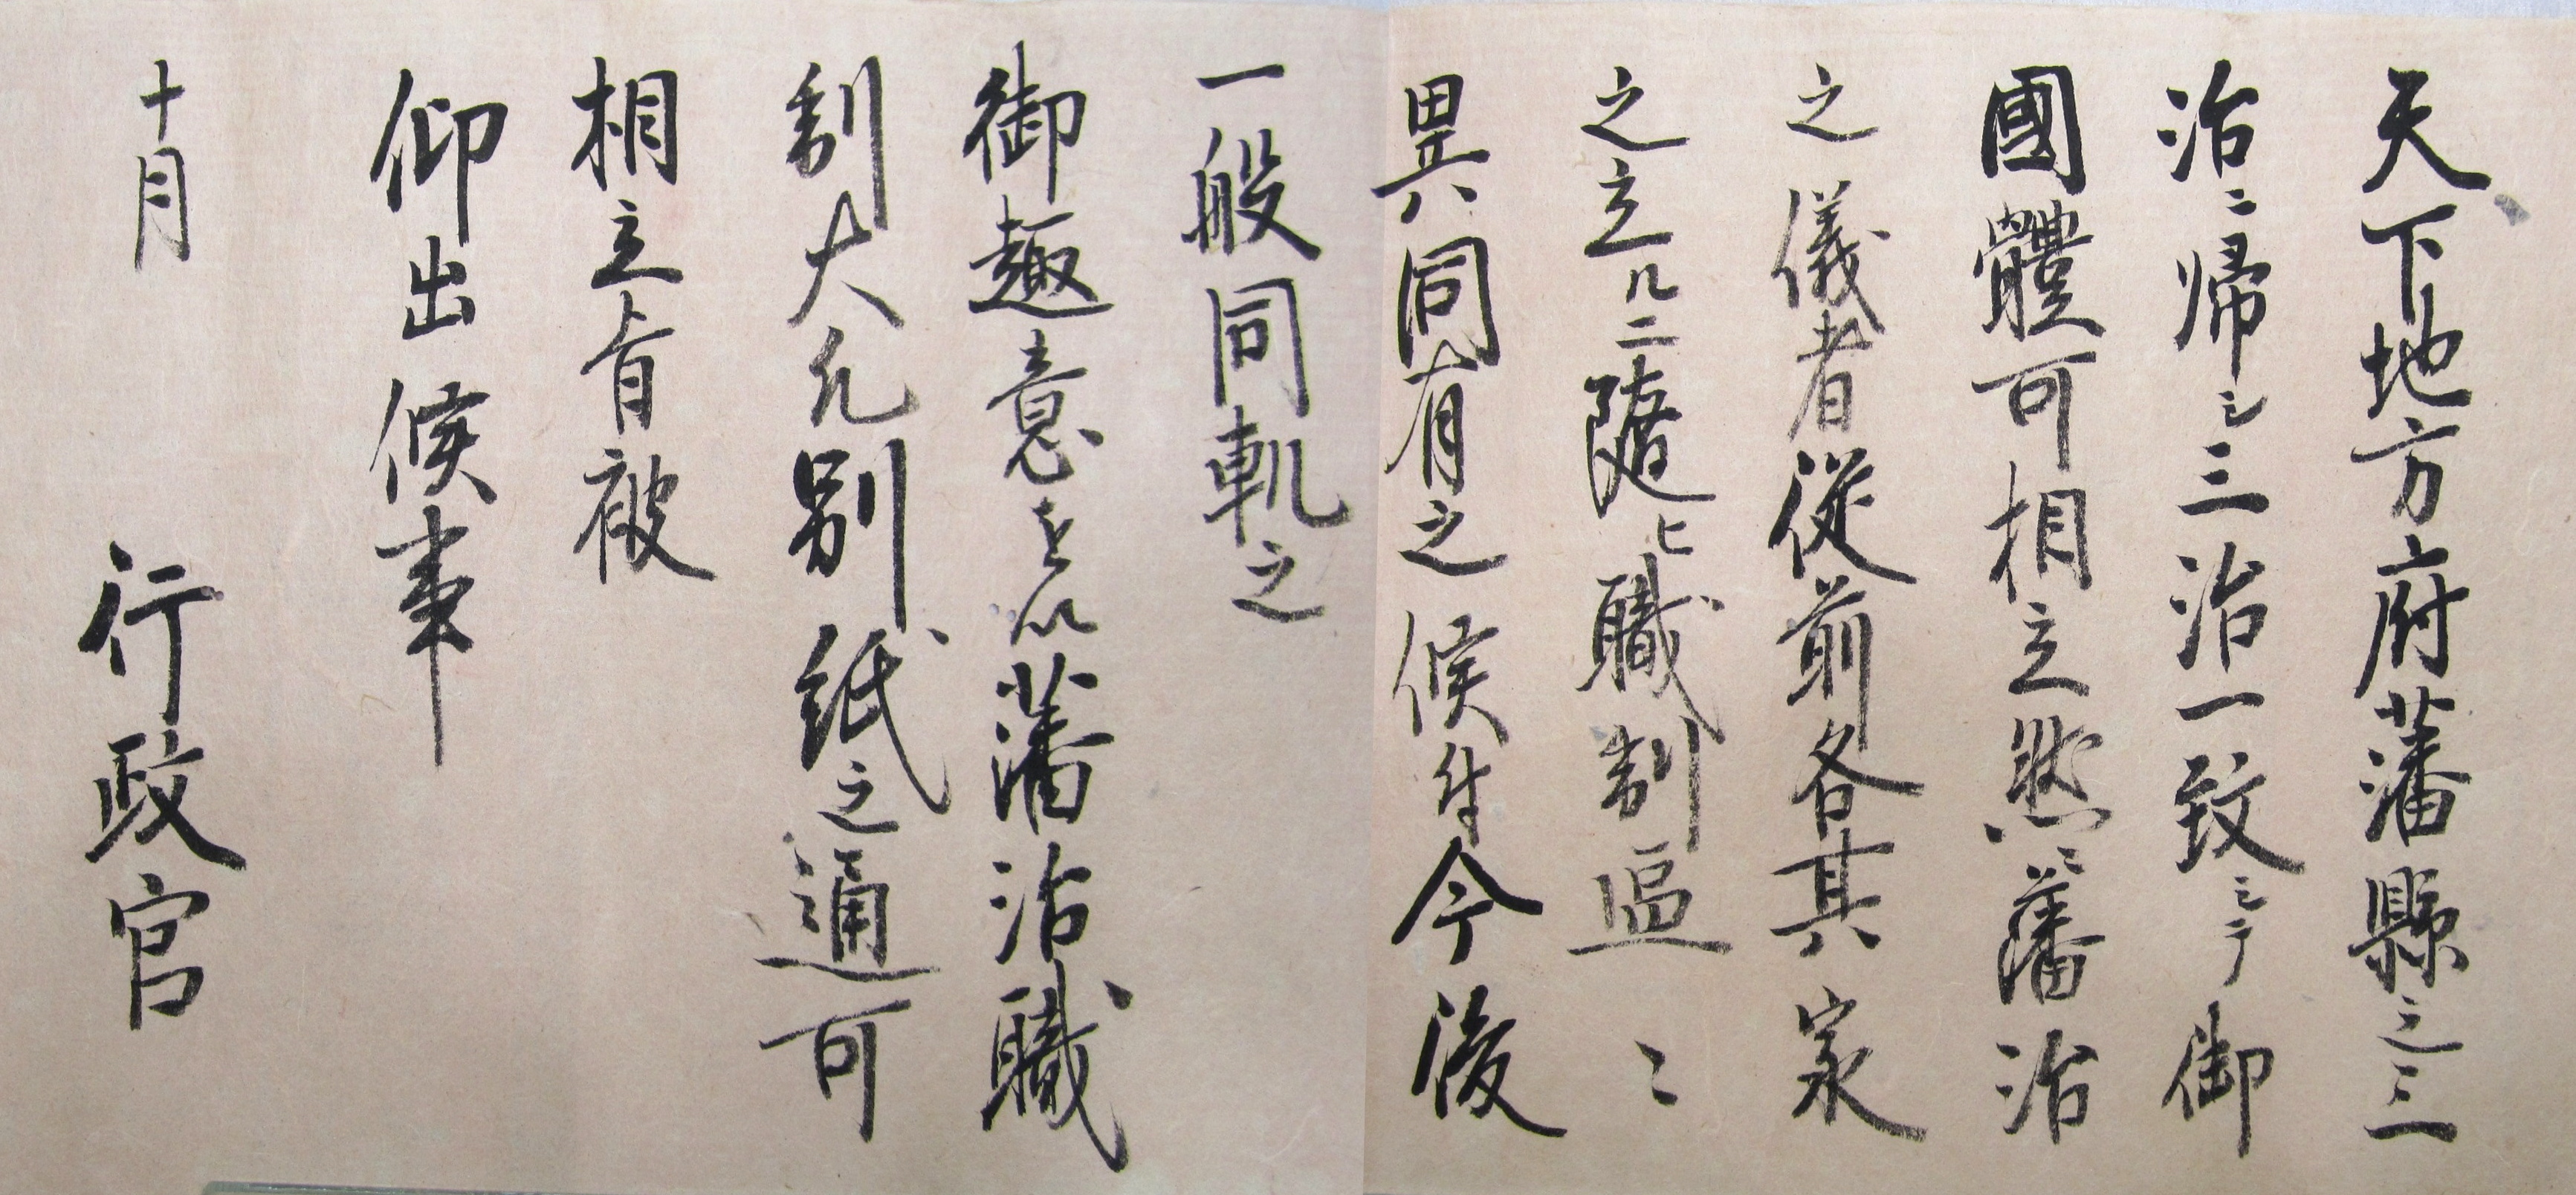 天下地方府藩縣之三
治ニ帰シ三治一致ニテ御
國體可相立然ニ藩治
之儀者従前各其家
之立ルニ隨ヒ職制區々
異同有之候付今後
一般同軌之
御趣意を以藩治職
制大凡別紙之通可
相立旨被
仰出候事
十月
行政官